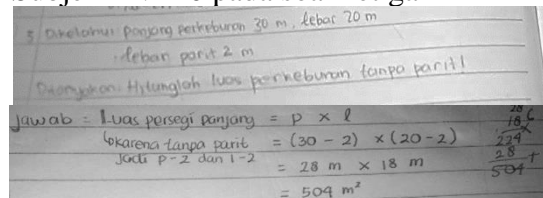 3 Diketahui panjang perkebunan 30 m, lebar 20 m
lebar parit 2 m
Ditanyakan: Hitunglah luas perkebunan tanpa parit!
Jawab = Luas persegi panjang = p x l
karena tanpa parit = (30 - 2) x (20 - 2)
Jadi p-2 dan l-2
= 28 m x 18 m
= 504 m²
28
18 x
224
28 +
504